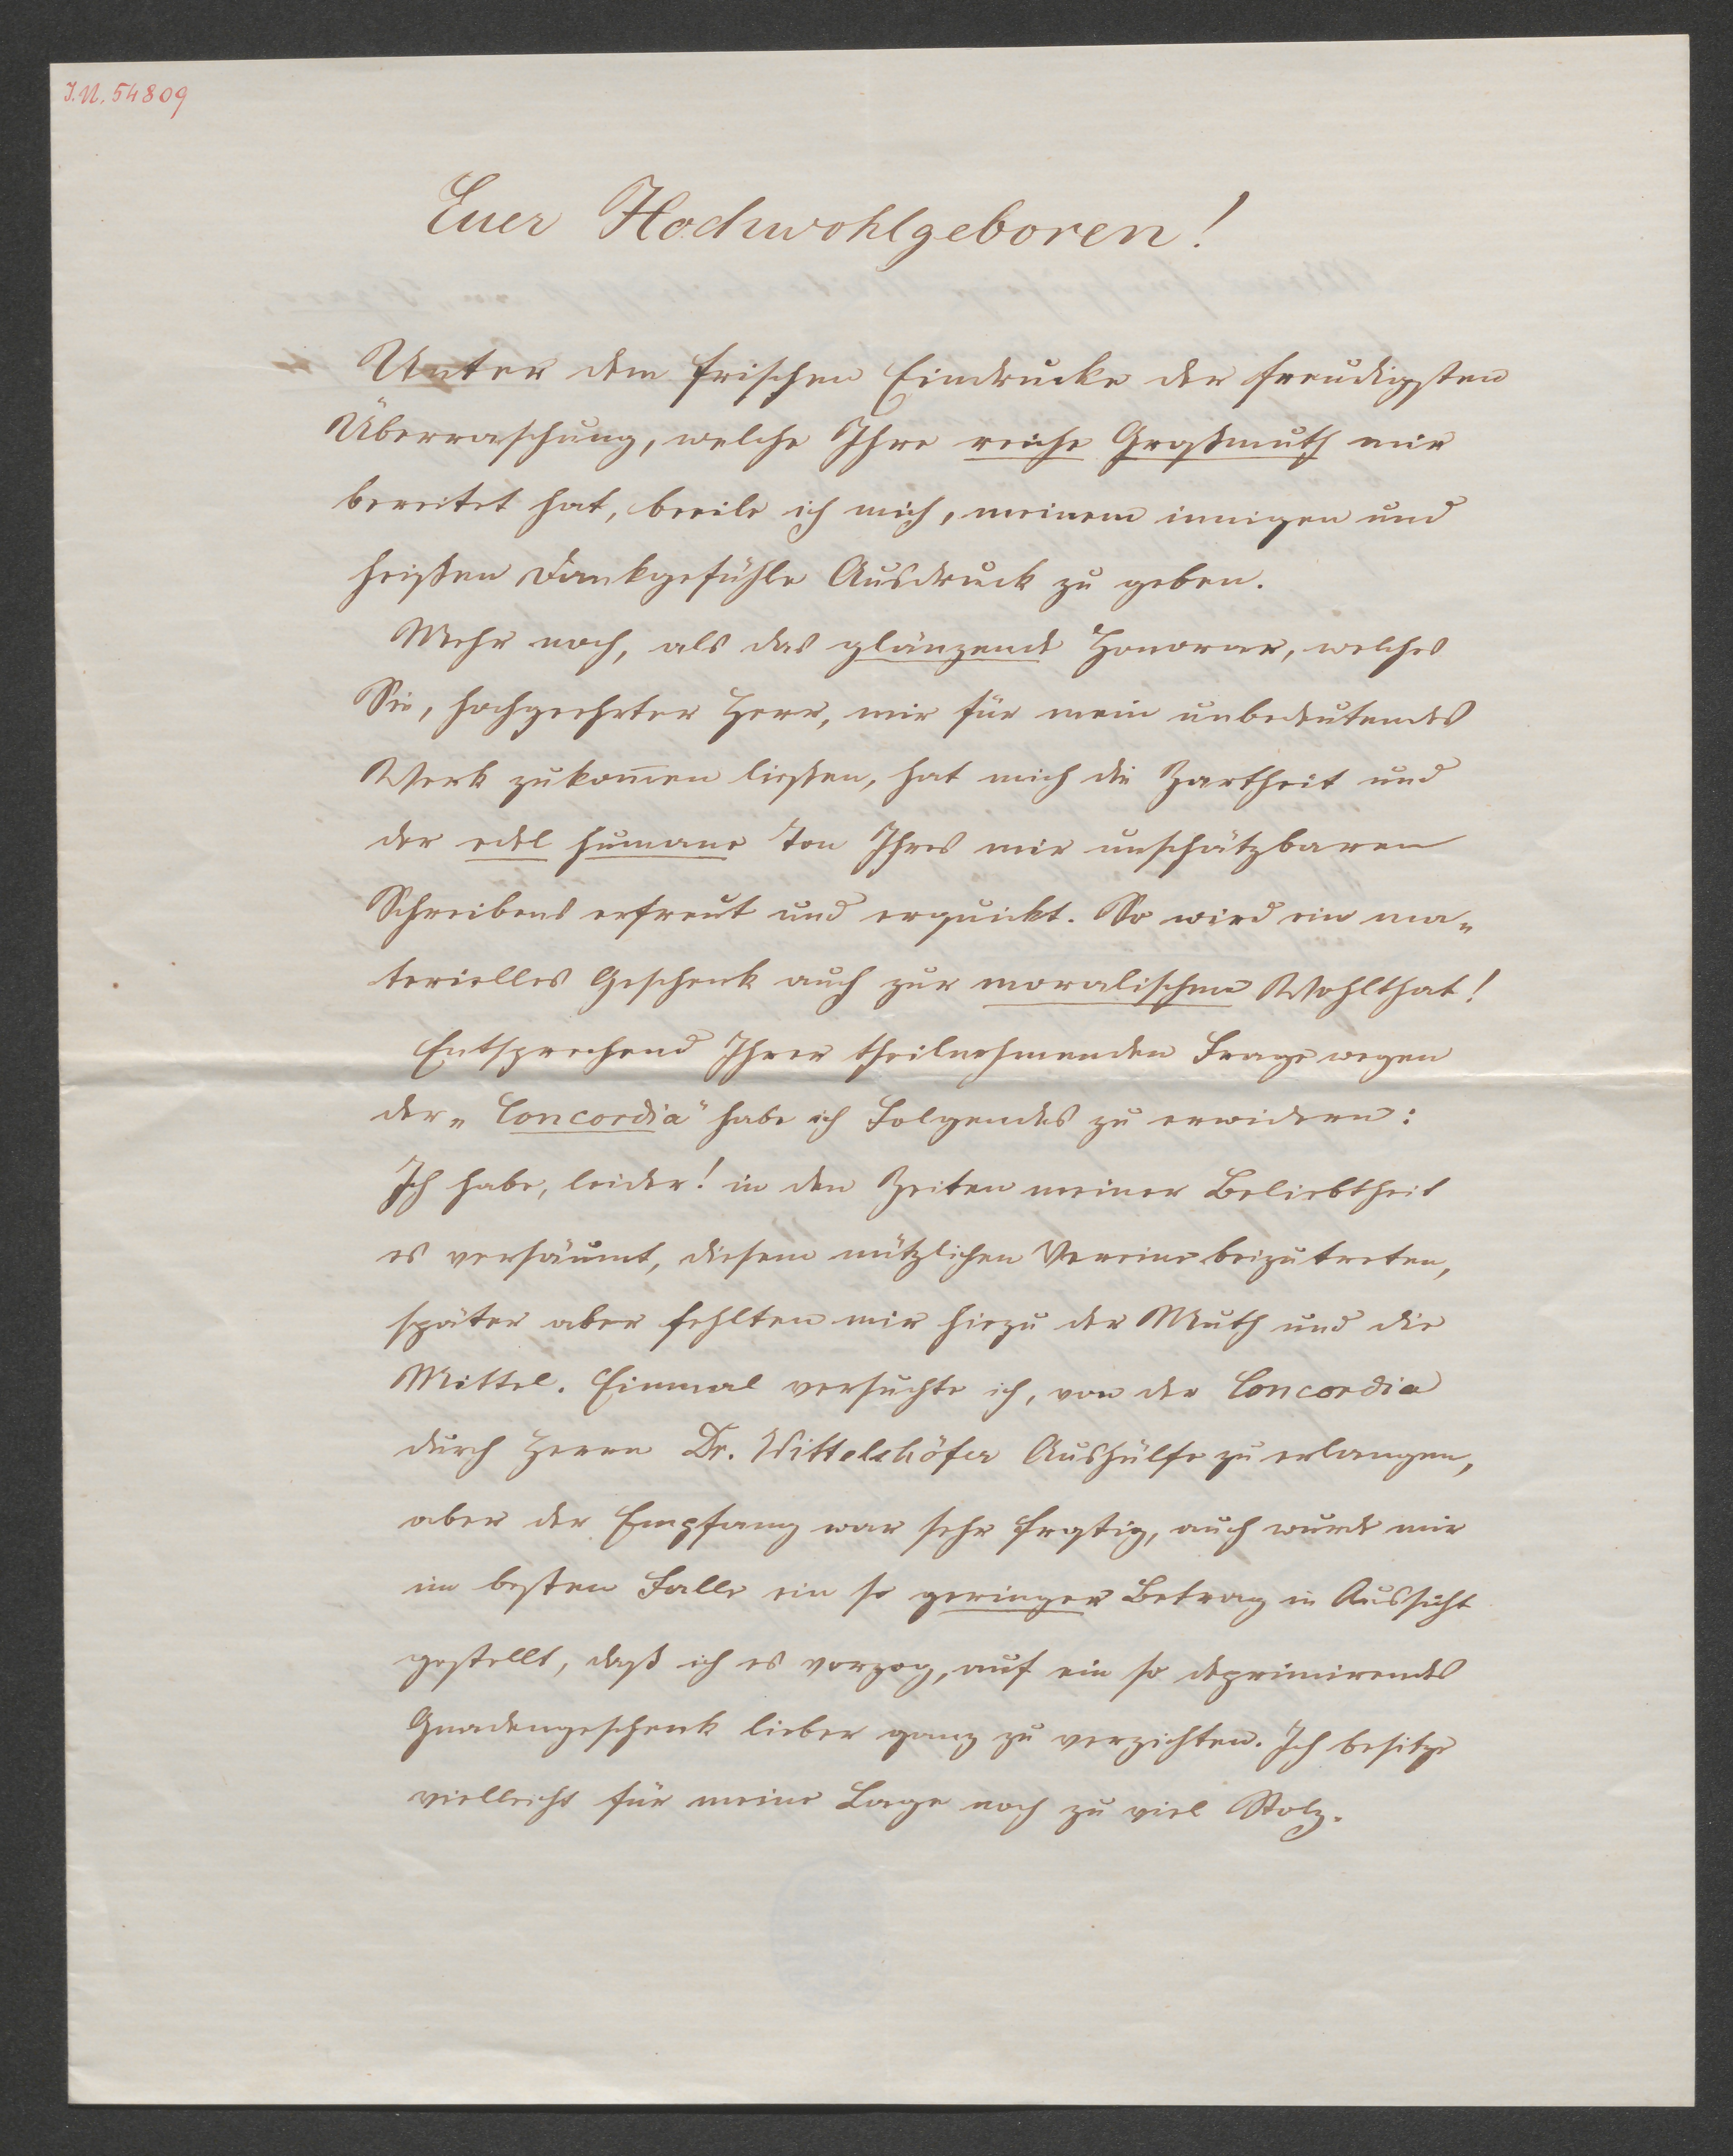 I.N. 54809
Euer Hochwohlgeboren!
Unter dem frischen Eindrucke der freudigsten
Überraschung, welche Ihre reiche Großmuth mir
bereitet hat, beeile ich mich, meinem innigen und
heißen Dankgefühle Ausdruck zu geben.
Mehr noch, als das glänzende Honorar, welches
Sie, hochgeehrter Herr, mir für mein unbedeutendes
Werk zukom̅en ließen, hat mich die Zartheit und
der edel humane Ton Ihres mir unschätzbaren
Schreibens erfreut und erquickt. So wird ein ma-
terielles Geschenk auch zur moralischen Wohlthat!
Entsprechend Ihrer theilnehmenden Frage wegen
der „Concordia“ habe ich Folgendes zu erwidern:
Ich habe, leider! in den Zeiten meiner Beliebtheit
es versäumt, diesem nützlichen Vereine beizutreten,
später aber fehlten mir hiezu der Muth und die
Mittel. Einmal versuchte ich, von der Concordia
durch Herrn Dr. Wittelshöfer Aushülfe zu erlangen,
aber der Empfang war sehr frostig, auch wurde mir
im besten Falle ein so geringer Betrag in Aussicht
gestellt, daß ich es vorzog, auf ein so deprimirendes
Gnadengeschenk lieber ganz zu verzichten. Ich besitze
vielleicht für meine Lage noch zu viel Stolz.